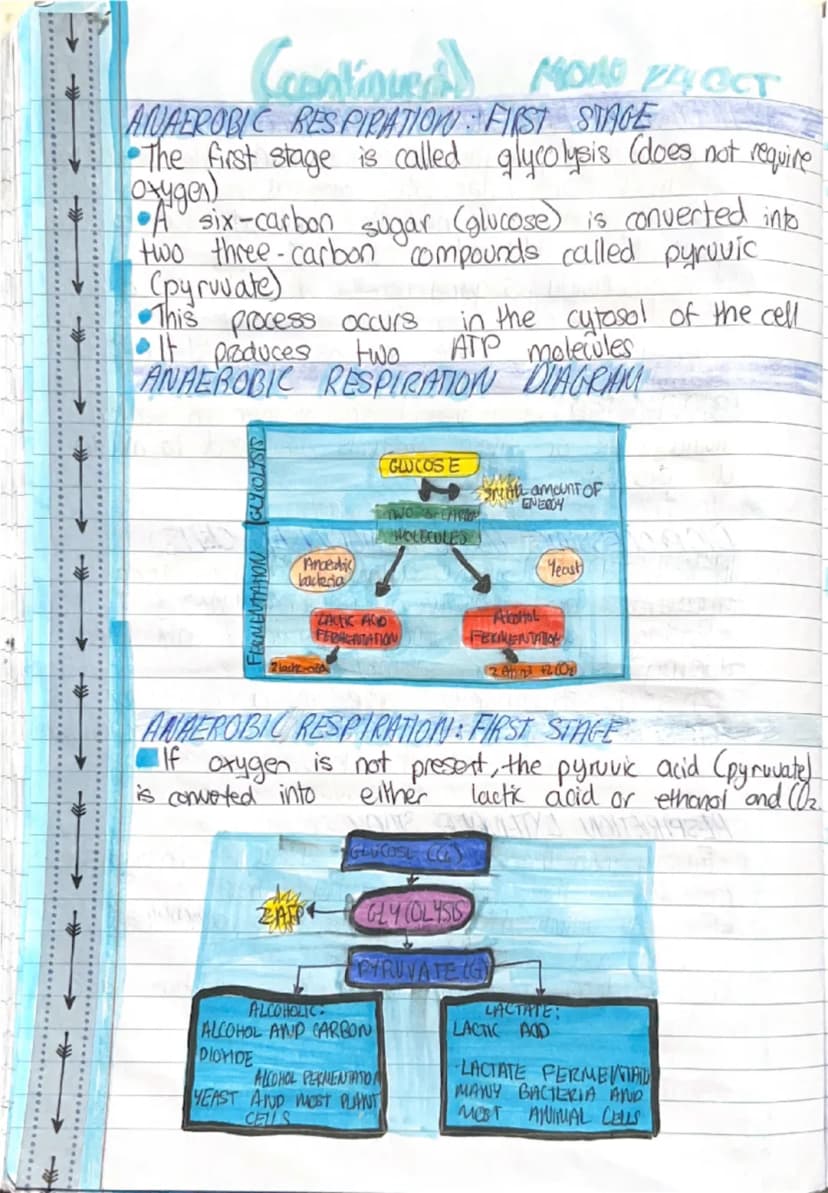 (continued) MOND 14 OCT
ANAEROBIC RESPIRATION: FIRST STAGE
•The first stage is called glycolysis (does not require
oxygen)
•A six-carbon sugar (glucose) is converted into
two three-carbon compounds called pyruvic
(pyruvate)
•This process occurs in the cytosol of the cell
•It produces two ATP molecules
ANAEROBIC RESPIRATION DIAGRAM
GLYCOLYSIS
GLUCOSE
small amount OF
ENERGY
TWO 3-CARBON
MOLECULES
FERMENTATION
Anaerobic
bacteria
Yeast
LACTIC ACID
FERMENTATION
Alcohol
FERMENTATION
2 lactic acid
2 +2CO2
ANAEROBIC RESPIRATION: FIRST STAGE
If oxygen is not present, the pyruvic acid (pyruvate)
is converted into either lactic acid or ethanol and CO2
GLUCOSE
GLYCOLYSIS
2 ATP
PYRUVATE
ALCOHOLIC:
ALCOHOL AND CARBON
DIOXIDE
ALCOHOL FERMENTATION
YEAST AND MOST PLANT
CELLS
LACTATE:
LACTIC ACID
-LACTATE
MANY BACTERIA AND
MOST ANIMAL CELLS